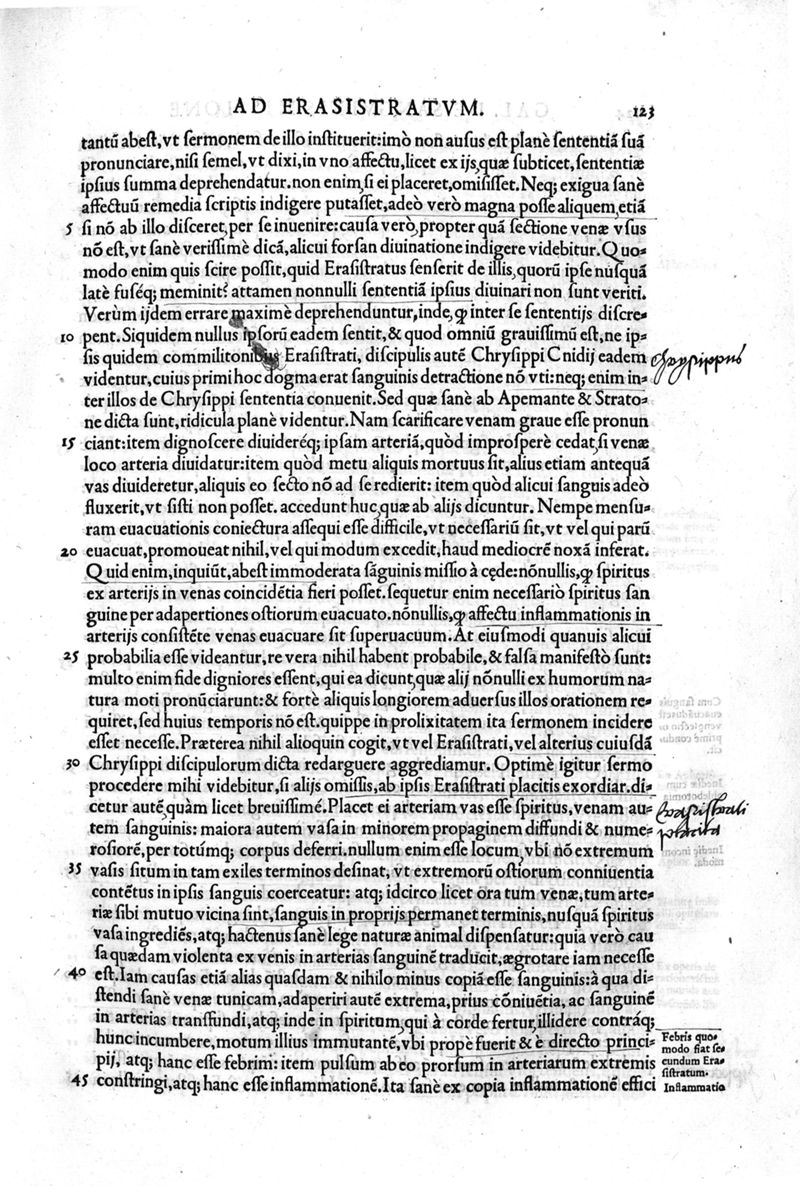 AD ERASISTRATVM. 123
tantũ abest, vt sermonem de illo instituerit: imò non ausus est planè sententiã suã
pronunciare, nisi semel, vt dixi, in vno affectu, licet ex ijs, quæ subticet, sententiæ
ipsius summa deprehendatur. non enim, si ei placeret, omisisset. Neq; exigua sanè
affectuũ remedia scriptis indigere putasset, adeò verò magna posse aliquem, etiã
5 si nõ ab illo disceret, per se inuenire: causa verò, propter quã sectione venæ vsus
nõ est, vt sanè verissimè dicã, alicui forsan diuinatione indigere videbitur. Quo-
modo enim quis scire possit, quid Erasistratus senserit de illis, quorũ ipse nusquã
latè fuséq; meminit? attamen nonnulli sententiã ipsius diuinari non sunt veriti.
Verùm ijdem errare maximè deprehenduntur, inde, ꝙ inter se sententijs discre-
10 pent. Siquidem nullus ipsorũ eadem sentit, & quod omniũ grauissimũ est, ne ip-
sis quidem commilitonibus Erasistrati, discipulis autẽ Chrysippi Cnidij eadem
Chrysippus
videntur, cuius primi hoc dogma erat sanguinis detractione nõ vti: neq; enim in-
ter illos de Chrysippi sententia conuenit. Sed quæ sanè ab Apemante & Strato-
ne dicta sunt, ridicula planè videntur. Nam scarificare venam graue esse pronun
15 ciant: item dignoscere diuideréq; ipsam arteriã, quòd improsperè cedat, si venæ
loco arteria diuidatur: item quòd metu aliquis mortuus sit, alius etiam antequã
vas diuideretur, aliquis eo secto nõ ad se redierit: item quòd alicui sanguis adeò
fluxerit, vt sisti non posset. accedunt huc, quæ ab alijs dicuntur. Nempe mensu-
ram euacuationis coniectura assequi esse difficile, vt necessariũ sit, vt vel qui parũ
20 euacuat, promoueat nihil, vel qui modum excedit, haud mediocrẽ noxã inferat.
Quid enim, inquiũt, abest immoderata sãguinis missio à cęde: nõnullis, ꝙ spiritus
ex arterijs in venas coincidẽtia fieri posset. sequetur enim necessariò spiritus san
guine per adapertiones ostiorum euacuato. nõnullis, ꝙ affectu inflammationis in
arterijs consistẽte venas euacuare sit superuacuum. At eiusmodi quanuis alicui
25 probabilia esse videantur, re vera nihil habent probabile, & falsa manifestò sunt:
multo enim fide digniores essent, qui ea dicunt, quæ alij nõnulli ex humorum na-
tura moti pronũciarunt: & fortè aliquis longiorem aduersus illos orationem re-
quiret, sed huius temporis nõ est. quippe in prolixitatem ita sermonem incidere
esset necesse. Præterea nihil alioquin cogit, vt vel Erasistrati, vel alterius cuiusdã
30 Chrysippi discipulorum dicta redarguere aggrediamur. Optimè igitur sermo
procedere mihi videbitur, si alijs omissis, ab ipsis Erasistrati placitis exordiar. di-
cetur autẽ, quàm licet breuissimé. Placet ei arteriam vas esse spiritus, venam au-
Erasistrati
tem sanguinis: maiora autem vasa in minorem propaginem diffundi & nume-
placita
rosiorẽ, per totúmq; corpus deferri. nullum enim esse locum, vbi nõ extremum
35 vasis situm in tam exiles terminos desinat, vt extremorũ ostiorum conniuentia
contẽtus in ipsis sanguis coerceatur: atq; idcirco licet ora tum venæ, tum arte-
riæ sibi mutuo vicina sint, sanguis in proprijs permanet terminis, nusquã spiritus
vasa ingrediẽs, atq; hactenus sanè lege naturæ animal dispensatur: quia verò cau
sa quædam violenta ex venis in arterias sanguinẽ traducit, ægrotare iam necesse
40 est. Iam causas etiã alias quasdam & nihilo minus copiã esse sanguinis: à qua di-
stendi sanè venæ tunicam, adaperiri autẽ extrema, prius cõniuẽtia, ac sanguinẽ
in arterias transfundi, atq; inde in spiritum, qui à corde fertur, illidere contráq;
hunc incumbere, motum illius immutantẽ, vbi propè fuerit & è directo princi-
pij, atq; hanc esse febrim: item pulsum ab eo prorsum in arteriarum extremis
45 constringi, atq; hanc esse inflammationẽ. Ita sanè ex copia inflammationẽ effici
Febris quo-
modo fiat se-
cundum Era-
sistratum.
Inflammatio